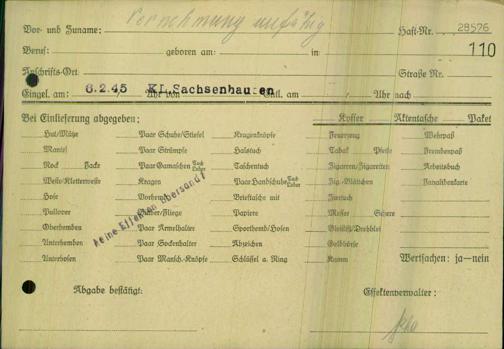 Vor- und Zuname: Vernehmung unfähig Haft-Nr. 28576
110
Beruf: geboren am: in:
Anschrifts-Ort Straße Nr.
Eingel. am: 6.2.45 Uhr von KL.Sachsenhausen Entl. am: Uhr nach
Bei Einlieferung abgegeben: Koffer Aktentasche Paket
Hut/Mütze Paar Schuhe/Stiefel Kragenknöpfe Feuerzeug Wehrpaß
Mantel Paar Strümpfe Halstuch Tabak Pfeife Fremdenpaß
Rock Jacke Paar Gamaschen Tuch Leder Taschentuch Zigarren/Zigaretten Arbeitsbuch
Weste/Kletterweste Kragen Paar Handschuhe Tuch Leder Zig.-Blättchen Invalidenkarte
Hose Vorhemd Brieftasche mit
Pullover Binder/Fliege Papiere Messer Schere
Oberhemden Paar Ärmelhalter Sporthemd/Hosen Bleistift/Drehblei
Unterhemden Paar Sockenhalter Abzeichen Geldbörse
Unterhosen Paar Mansch.-Knöpfe Schlüssel a. Ring Kamm Wertsachen: ja—nein
Keine Effekten übersandt!
Abgabe bestätigt: Effektenverwalter: